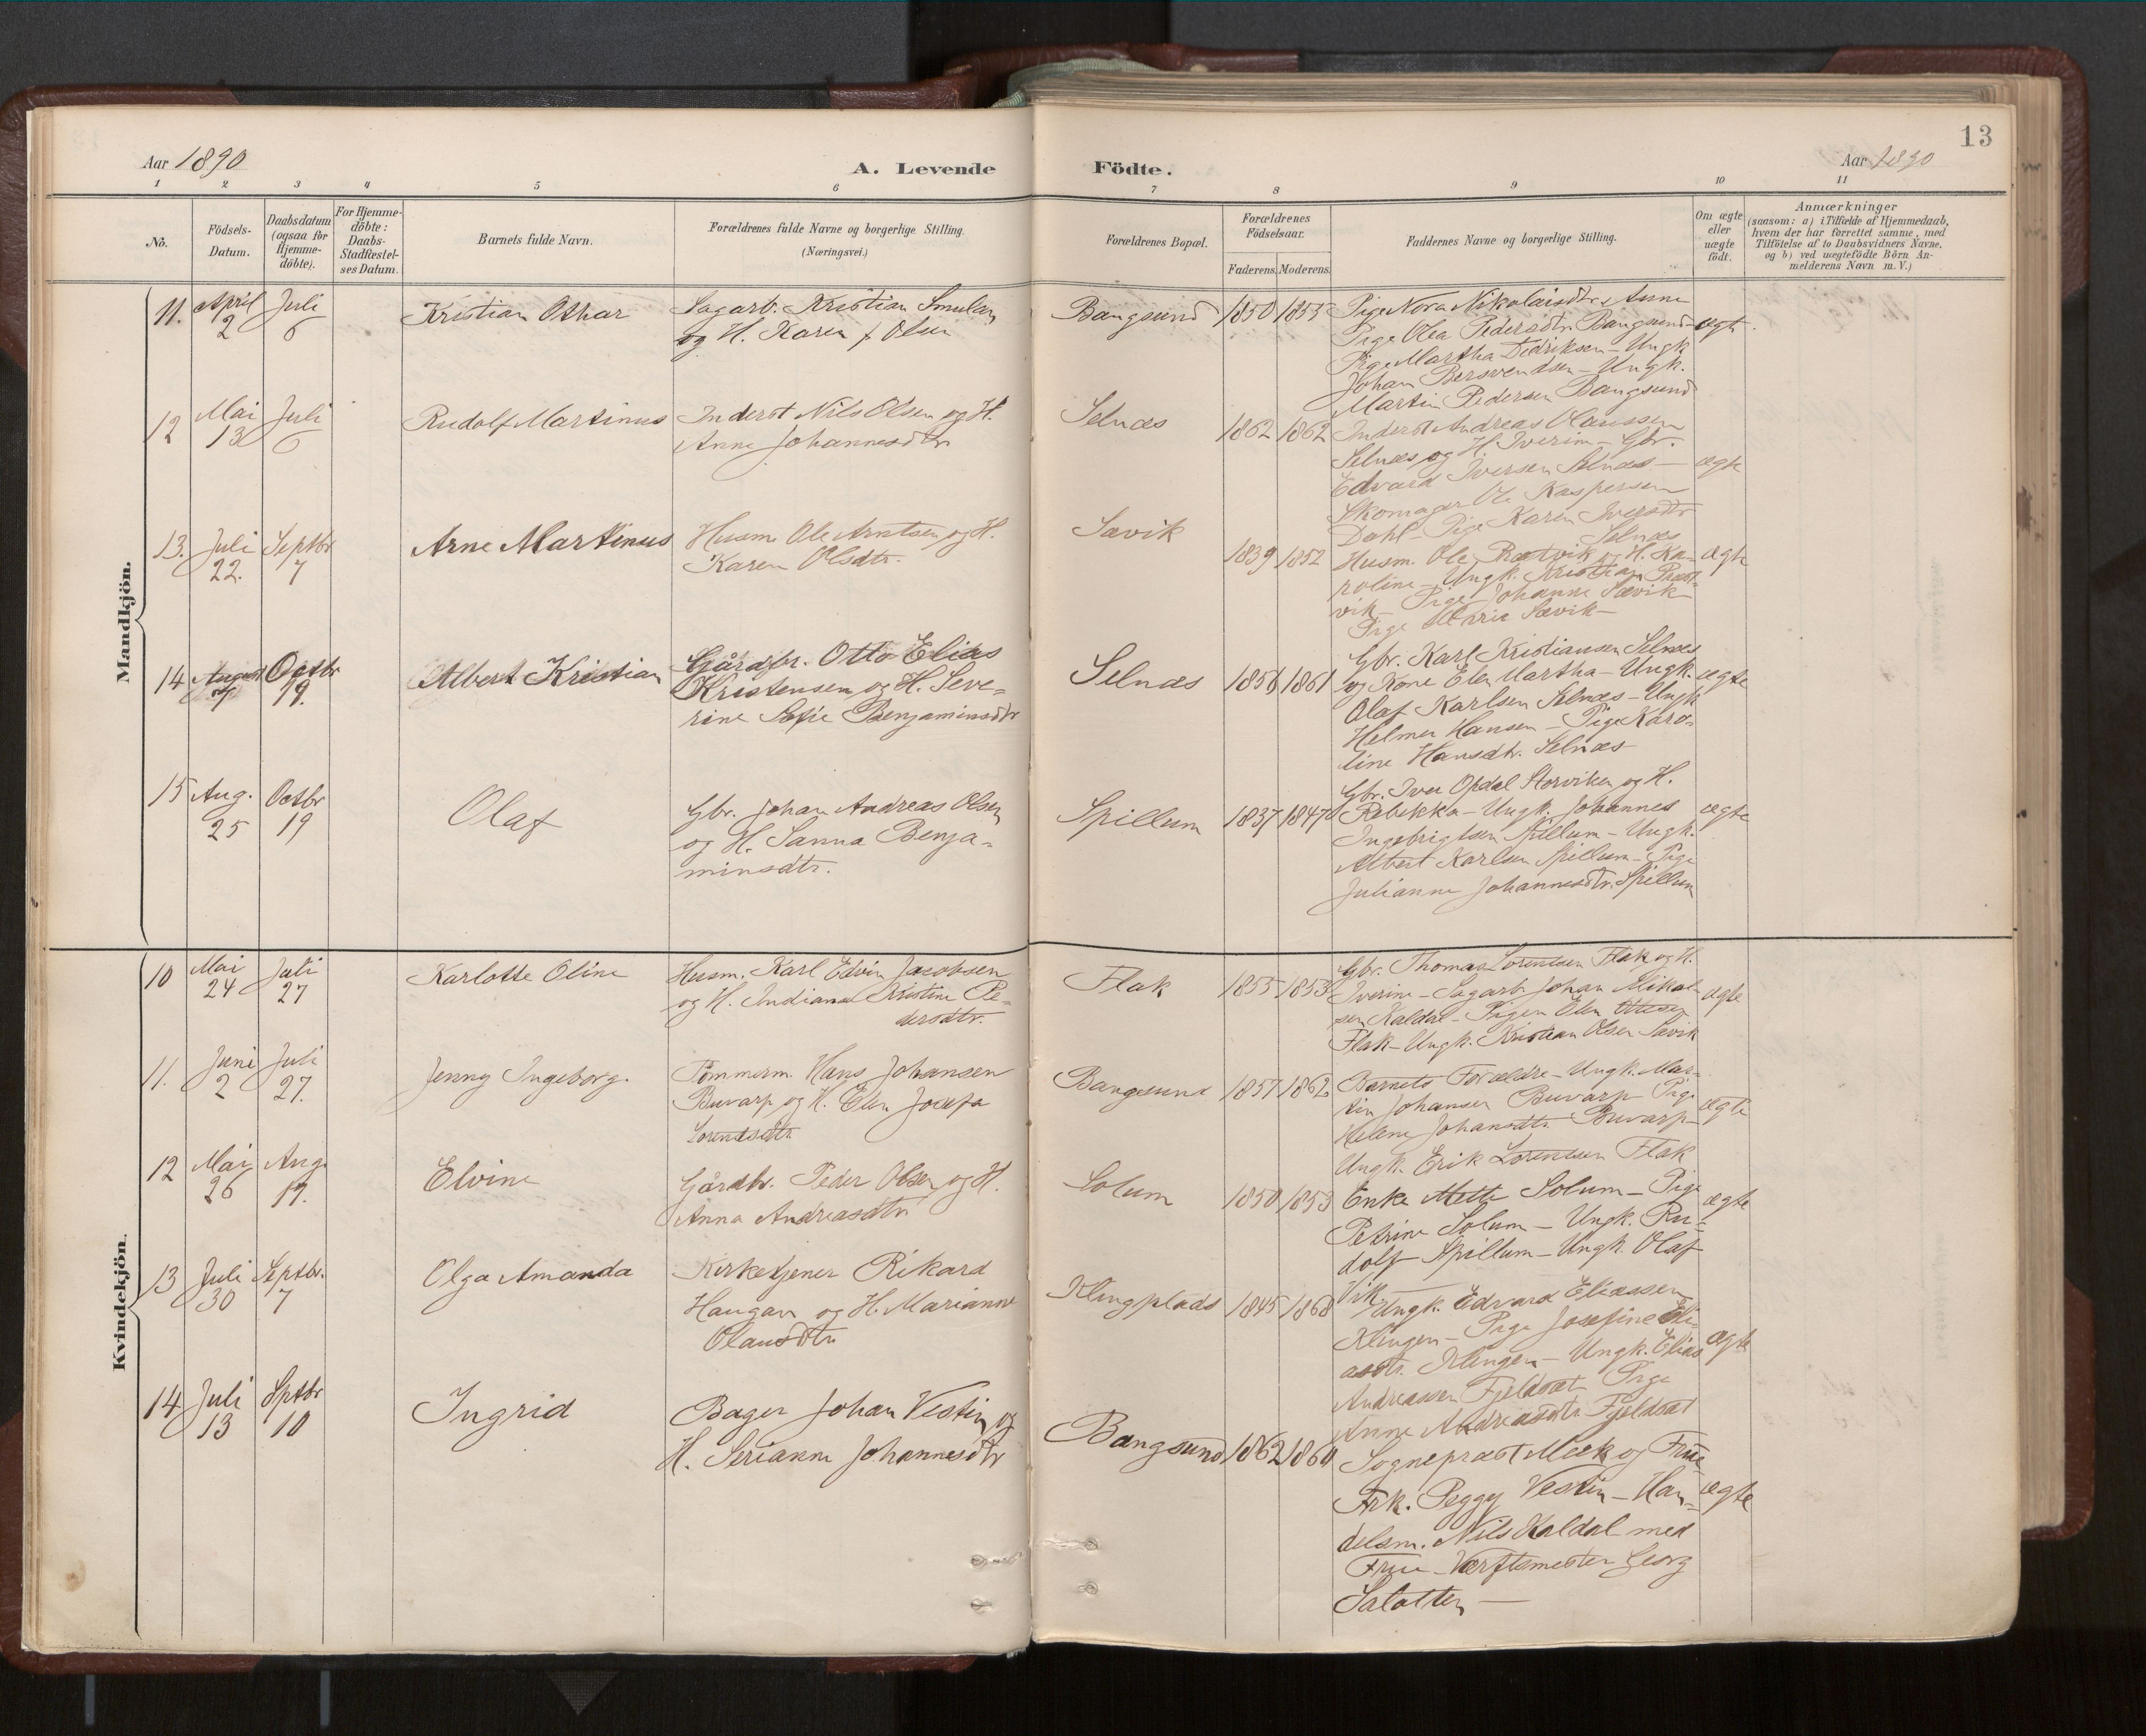 13
Aar 1890
A. Levende Födte.
Aar 1890
1 2 3 4 5 6 7 8 9 10 11
No.
Födsels-
Datum.
Daabsdatum
(ogsaa for
Hjemme-
döbte).
For Hjemme-
döbte:
Daabs-
Stadfæstel-
ses Datum.
Barnets fulde Navn.
Forældrenes fulde Navne og borgerlige Stilling.
(Næringsvei.)
Forældrenes Bopæl.
Forældrenes
Födselsaar.
Faderens. Moderens.
Faddernes Navne og borgerlige Stilling.
Om ægte
eller
uægte
födt.
Anmærkninger
(saasom: a) i Tilfælde af Hjemmedaab,
hvem der har forrettet samme, med
Tilföielse af to Daabsvidners Navne,
og b) ved uægtefödte Börn An-
melderens Navn m. V.)
Mandkjön.
11. April 2 Juli 6
Kristian Othar
Sagarb. Kristian Smulan
og H. Karen f Olsen
Bangsund
1850 1855
Pige Nora Nikolaisdtr Anne
Pige Olea Pedersdtr Bangsund
Pige Martha Didriksen – Ungk
Johan Bersvendsen – Ungk.
Martin Pedersen Bangsund
ægte
12 Mai 13 Juli 6
Rudolf Martinus
Inderst Nils Olsen og H.
Anne Johannesdtr
Selnæs
1862 1862
Inderst Andreas Olaussen
Selnæs og H. Iverine – Gbr.
Edvard Iversen Selnæs –
Skomager Ole Kaspersen
Dahl – Pige Karen Iversdtr
Selnæs
ægte
13. Juli 22. Septbr 7
Arne Martinus
Husm. Ole Arntsen og H.
Karen Olsdtr.
Savik
1839 1852
Husm. Ole Præstvik og H. Ka-
roline – Ungk. Kristian Præst-
vik – Pige Johanne Sævik
Pige Marie Sævik –
ægte
14 August 4 Octbr 19.
Albert Kristian
Gårdbr. Otto Elias
Kristensen og H. Seve-
rine Sofie Benjaminsdtr
Selnæs
1856 1861
Gbr. Karl Kristiansen Selnæs
og Kone Elen Martha – Ungk.
Olaf Karlsen Selnæs – Ungk
Helmer Hansen – Pige Karo-
line Hansdtr. Selnæs
ægte
15 Aug. 25 Octbr 19
Olaf
Gbr. Johan Andreas Olsen
og H. Sanna Benja-
minsdtr.
Spillum
1837 1847
Gbr. Iver Opdal Storviken og H.
Rebekka – Ungk. Johannes
Ingebrigtsen Spillum – Ungk.
Albert Karlsen Spillum – Pige
Julianne Johannesdtr. Spillum
ægte
Kvindekjön.
10 Mai 24 Juli 27
Karlotte Oline
Husm. Karl Edvin Jacobsen
og H. Indiana Kristine Pe-
dersdtr.
Flak
1855 1853
Gbr. Thomas Lorentsen Flak og H.
Iverine – Sagarb. Johan Mikal-
sen Kaldal – Pigen Elen
Flak – Ungk. Kristian Olsen Savik
ægte
11. Juni 2 Juli 27.
Jenny Ingeborg.
Tömmerm. Hans Johansen
Buvarp og H. Elen Josefa
Lorentsdtr.
Bangsund
1857 1862
Barnets Forældre – Ungk. Mar-
tin Johansen Buvarp Pige
Helene Johansdtr Buvarp –
Ungk. Erik Lorentsen Flak
ægte
12 Mai 26 Aug. 17.
Elvine
Gårdbr. Peder Olsen og H.
Anna Andreasdtr
Solum
1850 1853
Enke Mette Solum – Pige
Petrine Solum – Ungk. Ru-
dolf Spillum – Ungk. Olaf
Vik.
ægte
13 Juli 30 Septbr. 7
Olga Amanda
Kirketjener Rikard
Haugan og H. Marianne
Olausdtr
Klingplads
1845 1868
Ungk. Edvard Eliassen
Klingen – Pige Josefine Eli-
asdtr. Klingen – Ungk. Elias
Andreassen Fjeldsæt Pige
Anne Andreasdtr Fjeldsæt
ægte
14 Juli 13 Sptbr 10
Ingrid
Bager Johan Vestin og
H. Serianne Johannesdtr
Bangsund
1862 1860
Sognepræst Meek og Frue
Frk. Peggy Vestin – Han-
delsm. Nils Kaldal med
Frue – Værftsmester Georg
Salotten –
ægte